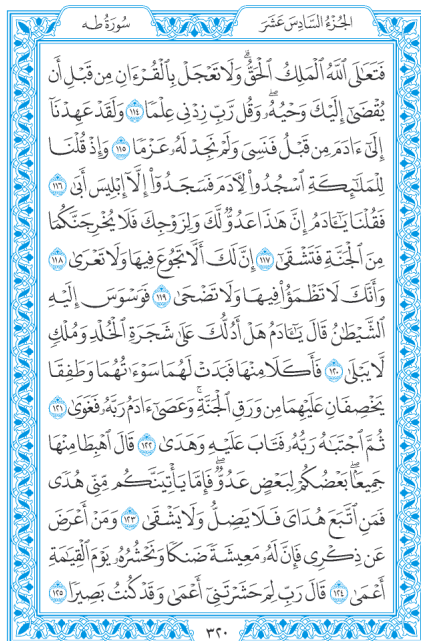 الجُزْءُ السَّادِسَ عَشَرَ
سُورَةُ طه
فَتَعَٰلَى ٱللَّهُ ٱلْمَلِكُ ٱلْحَقُّۗ وَلَا تَعْجَلْ بِٱلْقُرْءَانِ مِن قَبْلِ أَن
يُقْضَىٰٓ إِلَيْكَ وَحْيُهُۥۖ وَقُل رَّبِّ زِدْنِى عِلْمًا ١١٤ وَلَقَدْ عَهِدْنَآ
إِلَىٰٓ ءَادَمَ مِن قَبْلُ فَنَسِىَ وَلَمْ نَجِدْ لَهُۥ عَزْمًا ١١٥ وَإِذْ قُلْنَا
لِلْمَلَٰٓئِكَةِ ٱسْجُدُوا۟ لِءَادَمَ فَسَجَدُوٓا۟ إِلَّآ إِبْلِيسَ أَبَىٰ ١١٦
فَقُلْنَا يَٰٓـَٔادَمُ إِنَّ هَٰذَا عَدُوٌّ لَّكَ وَلِزَوْجِكَ فَلَا يُخْرِجَنَّكُمَا
مِنَ ٱلْجَنَّةِ فَتَشْقَىٰٓ ١١٧ إِنَّ لَكَ أَلَّا تَجُوعَ فِيهَا وَلَا تَعْرَىٰ ١١٨
وَأَنَّكَ لَا تَظْمَؤُا۟ فِيهَا وَلَا تَضْحَىٰ ١١٩ فَوَسْوَسَ إِلَيْهِ
ٱلشَّيْطَٰنُ قَالَ يَٰٓـَٔادَمُ هَلْ أَدُلُّكَ عَلَىٰ شَجَرَةِ ٱلْخُلْدِ وَمُلْكٍ
لَّا يَبْلَىٰ ١٢٠ فَأَكَلَا مِنْهَا فَبَدَتْ لَهُمَا سَوْءَٰتُهُمَا وَطَفِقَا
يَخْصِفَانِ عَلَيْهِمَا مِن وَرَقِ ٱلْجَنَّةِۚ وَعَصَىٰٓ ءَادَمُ رَبَّهُۥ فَغَوَىٰ ١٢١
ثُمَّ ٱجْتَبَٰهُ رَبُّهُۥ فَتَابَ عَلَيْهِ وَهَدَىٰ ١٢٢ قَالَ ٱهْبِطَا مِنْهَا
جَمِيعًۢاۖ بَعْضُكُمْ لِبَعْضٍ عَدُوٌّۖ فَإِمَّا يَأْتِيَنَّكُم مِّنِّى هُدًى
فَمَنِ ٱتَّبَعَ هُدَاىَ فَلَا يَضِلُّ وَلَا يَشْقَىٰ ١٢٣ وَمَنْ أَعْرَضَ
عَن ذِكْرِى فَإِنَّ لَهُۥ مَعِيشَةً ضَنكًا وَنَحْشُرُهُۥ يَوْمَ ٱلْقِيَٰمَةِ
أَعْمَىٰ ١٢٤ قَالَ رَبِّ لِمَ حَشَرْتَنِىٓ أَعْمَىٰ وَقَدْ كُنتُ بَصِيرًا ١٢٥
٣٢٠